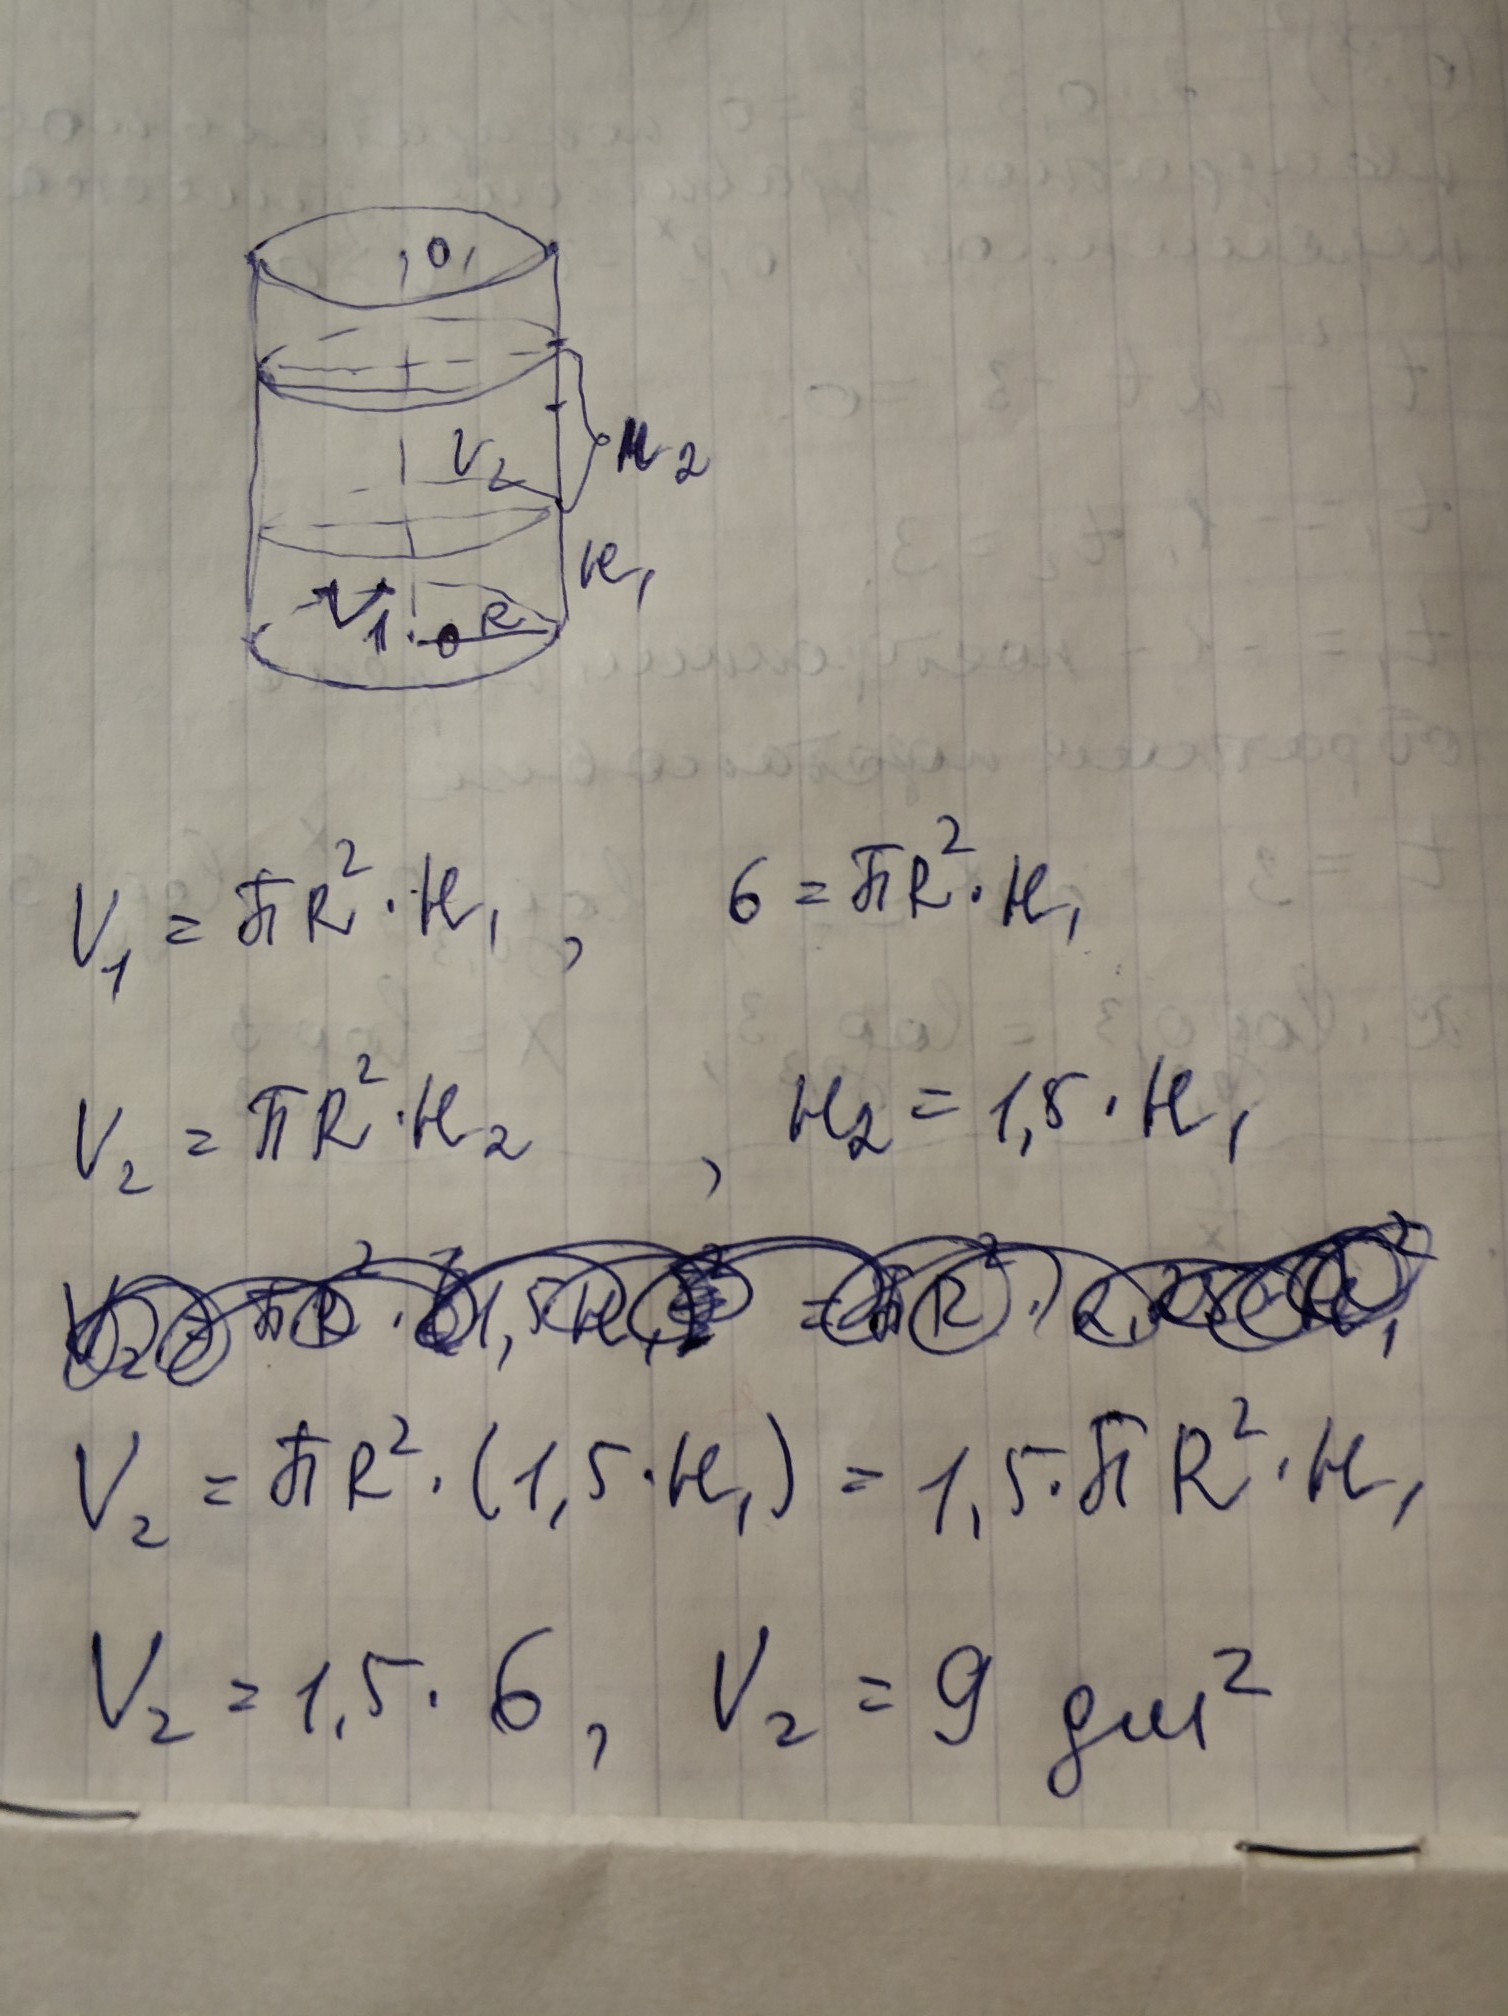 O₁
V₂ H₂
H₁
V₁ O R
V₁ = πR² · H₁ , 6 = πR² · H₁
V₂ = πR² · H₂ , H₂ = 1,5 · H₁
V₂ = πR² · (1,5 · H₁) = 1,5 · πR² · H₁
V₂ = 1,5 · 6 , V₂ = 9 дм²